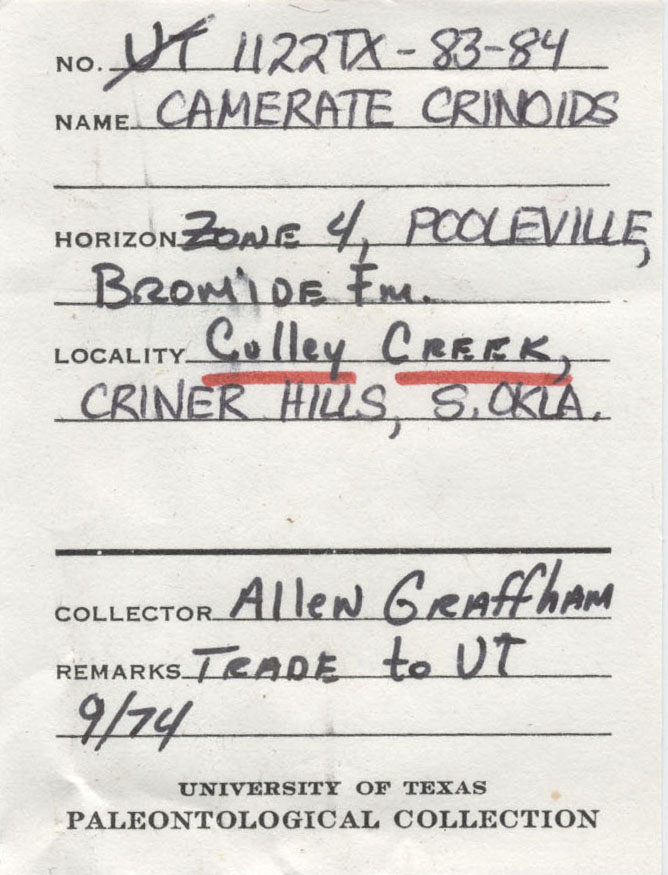 NO. UT 1122TX-83-84
NAME CAMERATE CRINOIDS
HORIZON ZONE 4, POOLEVILLE,
BROMIDE Fm.
LOCALITY Culley CREEK,
CRINER HILLS, S. OKLA.
COLLECTOR Allen Graffham
REMARKS TRADE to UT
9/74
UNIVERSITY OF TEXAS
PALEONTOLOGICAL COLLECTION